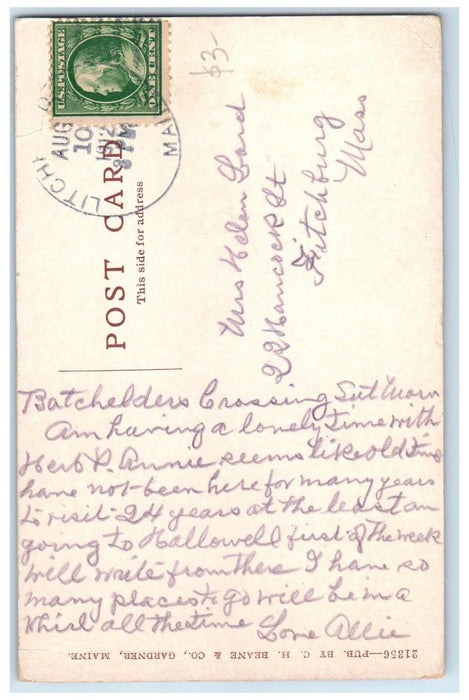 U.S. POSTAGE
ONE CENT
LITCH
AUG
10
1912
MA
$3-
POST CARD
This side for address
Mrs Helen Lord
22 Hancock St
Fitchburg
Mass
Batchelders Crossing Sat Morn
Am having a lonely time with
Herb P. Annie seems like old tims
have not been here for many years
to visit 24 years at the least am
going to Hallowell first of the week
will write from there I have so
many places to go will be in a
whirl all the time Love Allie
21356—PUB. BY C. H. BEANE & CO., GARDNER, MAINE.